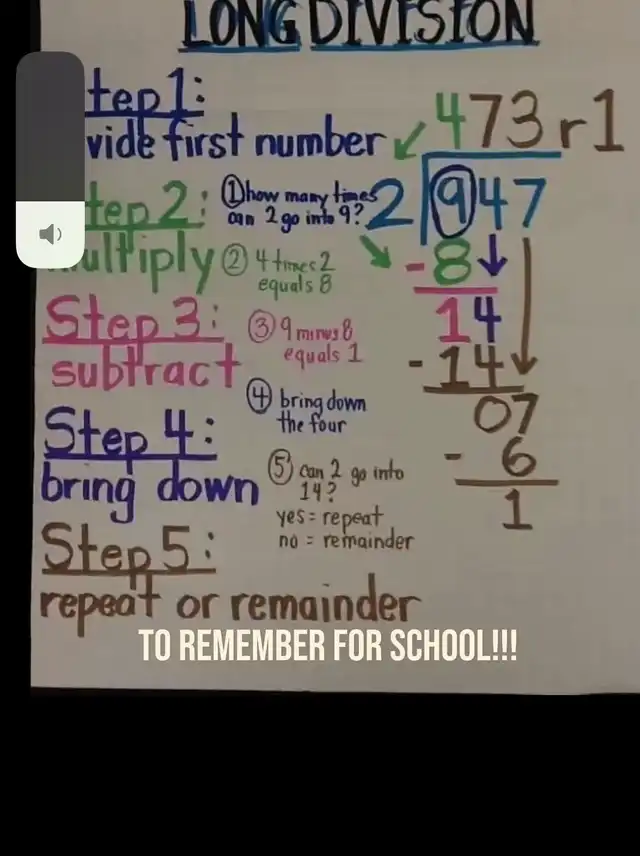 LONG DIVISION
tep 1:
vide first number
tep 2:
ultiply
Step 3:
subtract
Step 4:
bring down
Step 5:
repeat or remainder
① how many times
can 2 go into 9?
② 4 times 2
equals 8
③ 9 minus 8
equals 1
④ bring down
the four
⑤ can 2 go into
14?
yes = repeat
no = remainder
473 r1
2 947
- 8
14
- 14
07
- 6
1
TO REMEMBER FOR SCHOOL!!!